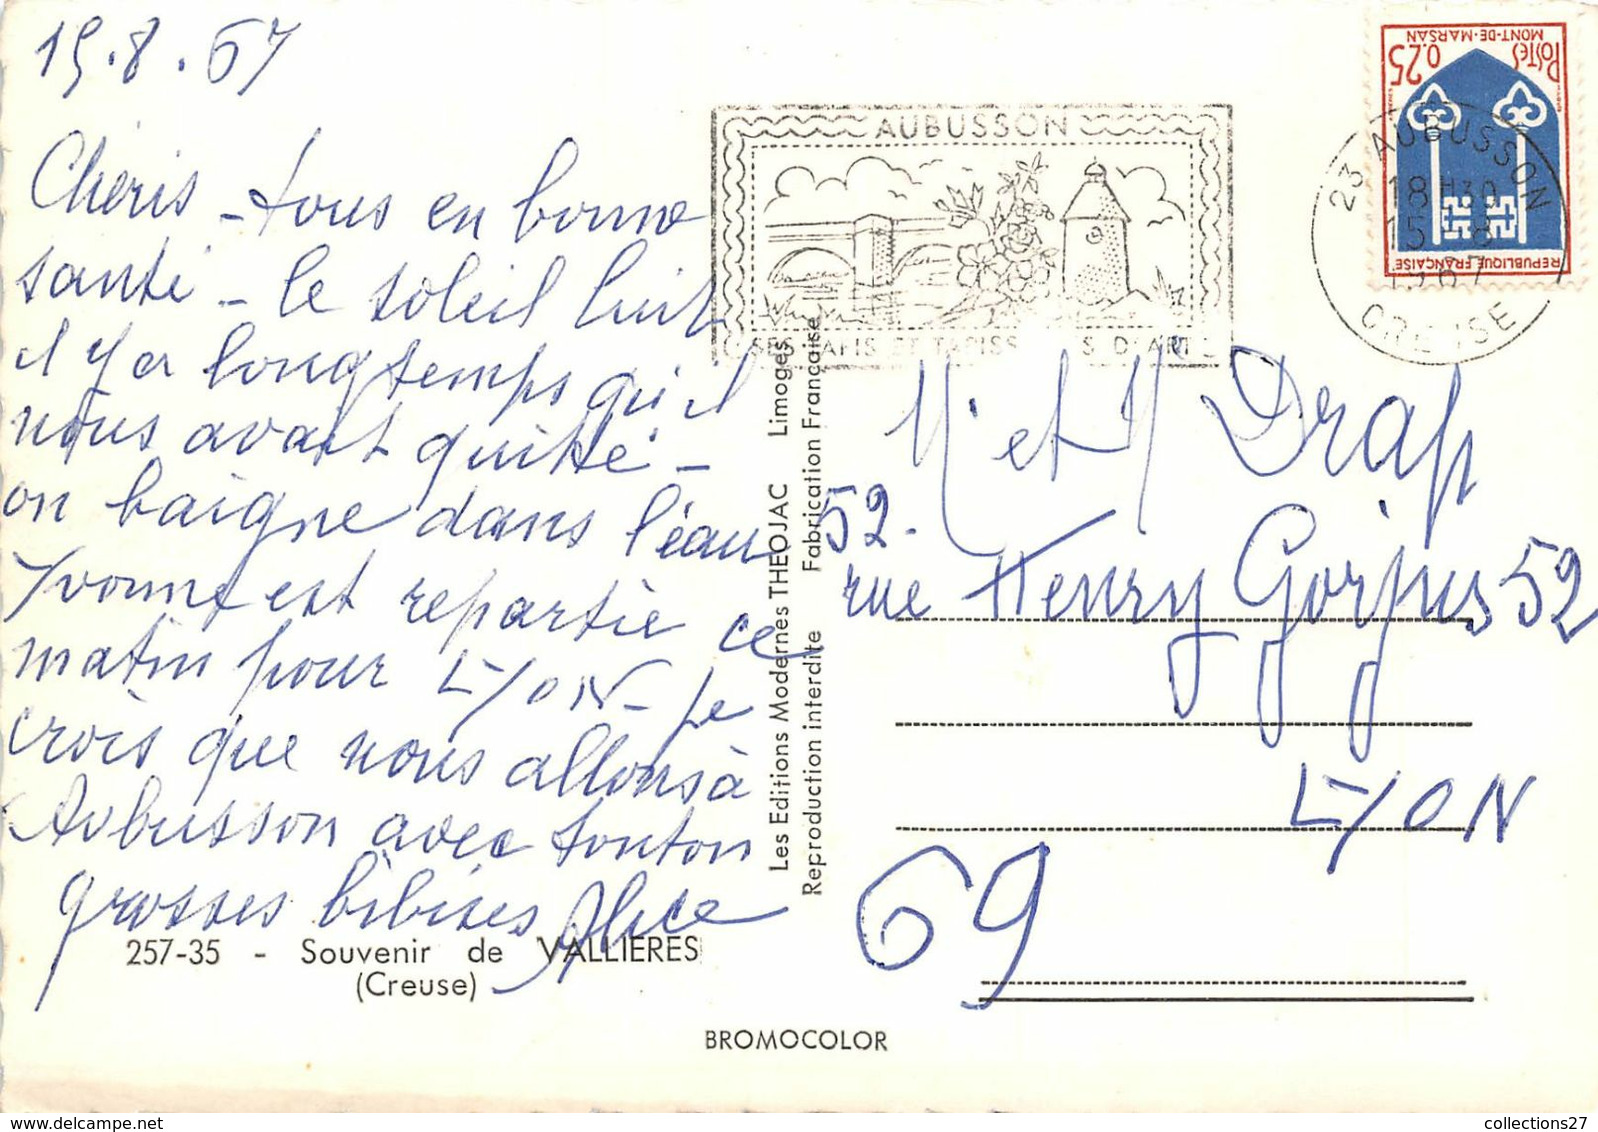 15.8.67
Chéris - tous en bonne
santé - le soleil luit
il y a longtemps qu'il
nous avait quitté -
on baigne dans l'eau
Yvonne est repartie ce
matin pour LYON - je
crois que nous allons à
Aubusson avec tonton
grosses bibises Alice
257-35 - Souvenir de VALLIERES
(Creuse)
BROMOCOLOR
Les Editions Modernes THEOJAC Limoges
Reproduction interdite Fabrication Française
AUBUSSON
SES TAPIS ET TAPISS S D'ART
POSTES 0.25
MONT-DE-MARSAN
REPUBLIQUE FRANÇAISE
23 AUBUSSON
18 H30
15-8
1967
CREUSE
M et M Drap
52.
rue Henry Gorjus 52
LYON
69
collections27